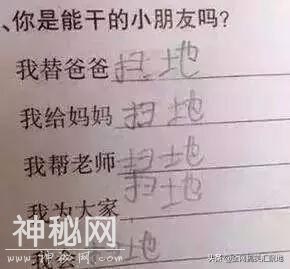 、你是能干的小朋友吗?
我替爸爸扫地
我给妈妈扫地
我帮老师扫地
我为大家扫地
神秘网
WWW.SHENMIW.COM
我 地
头条